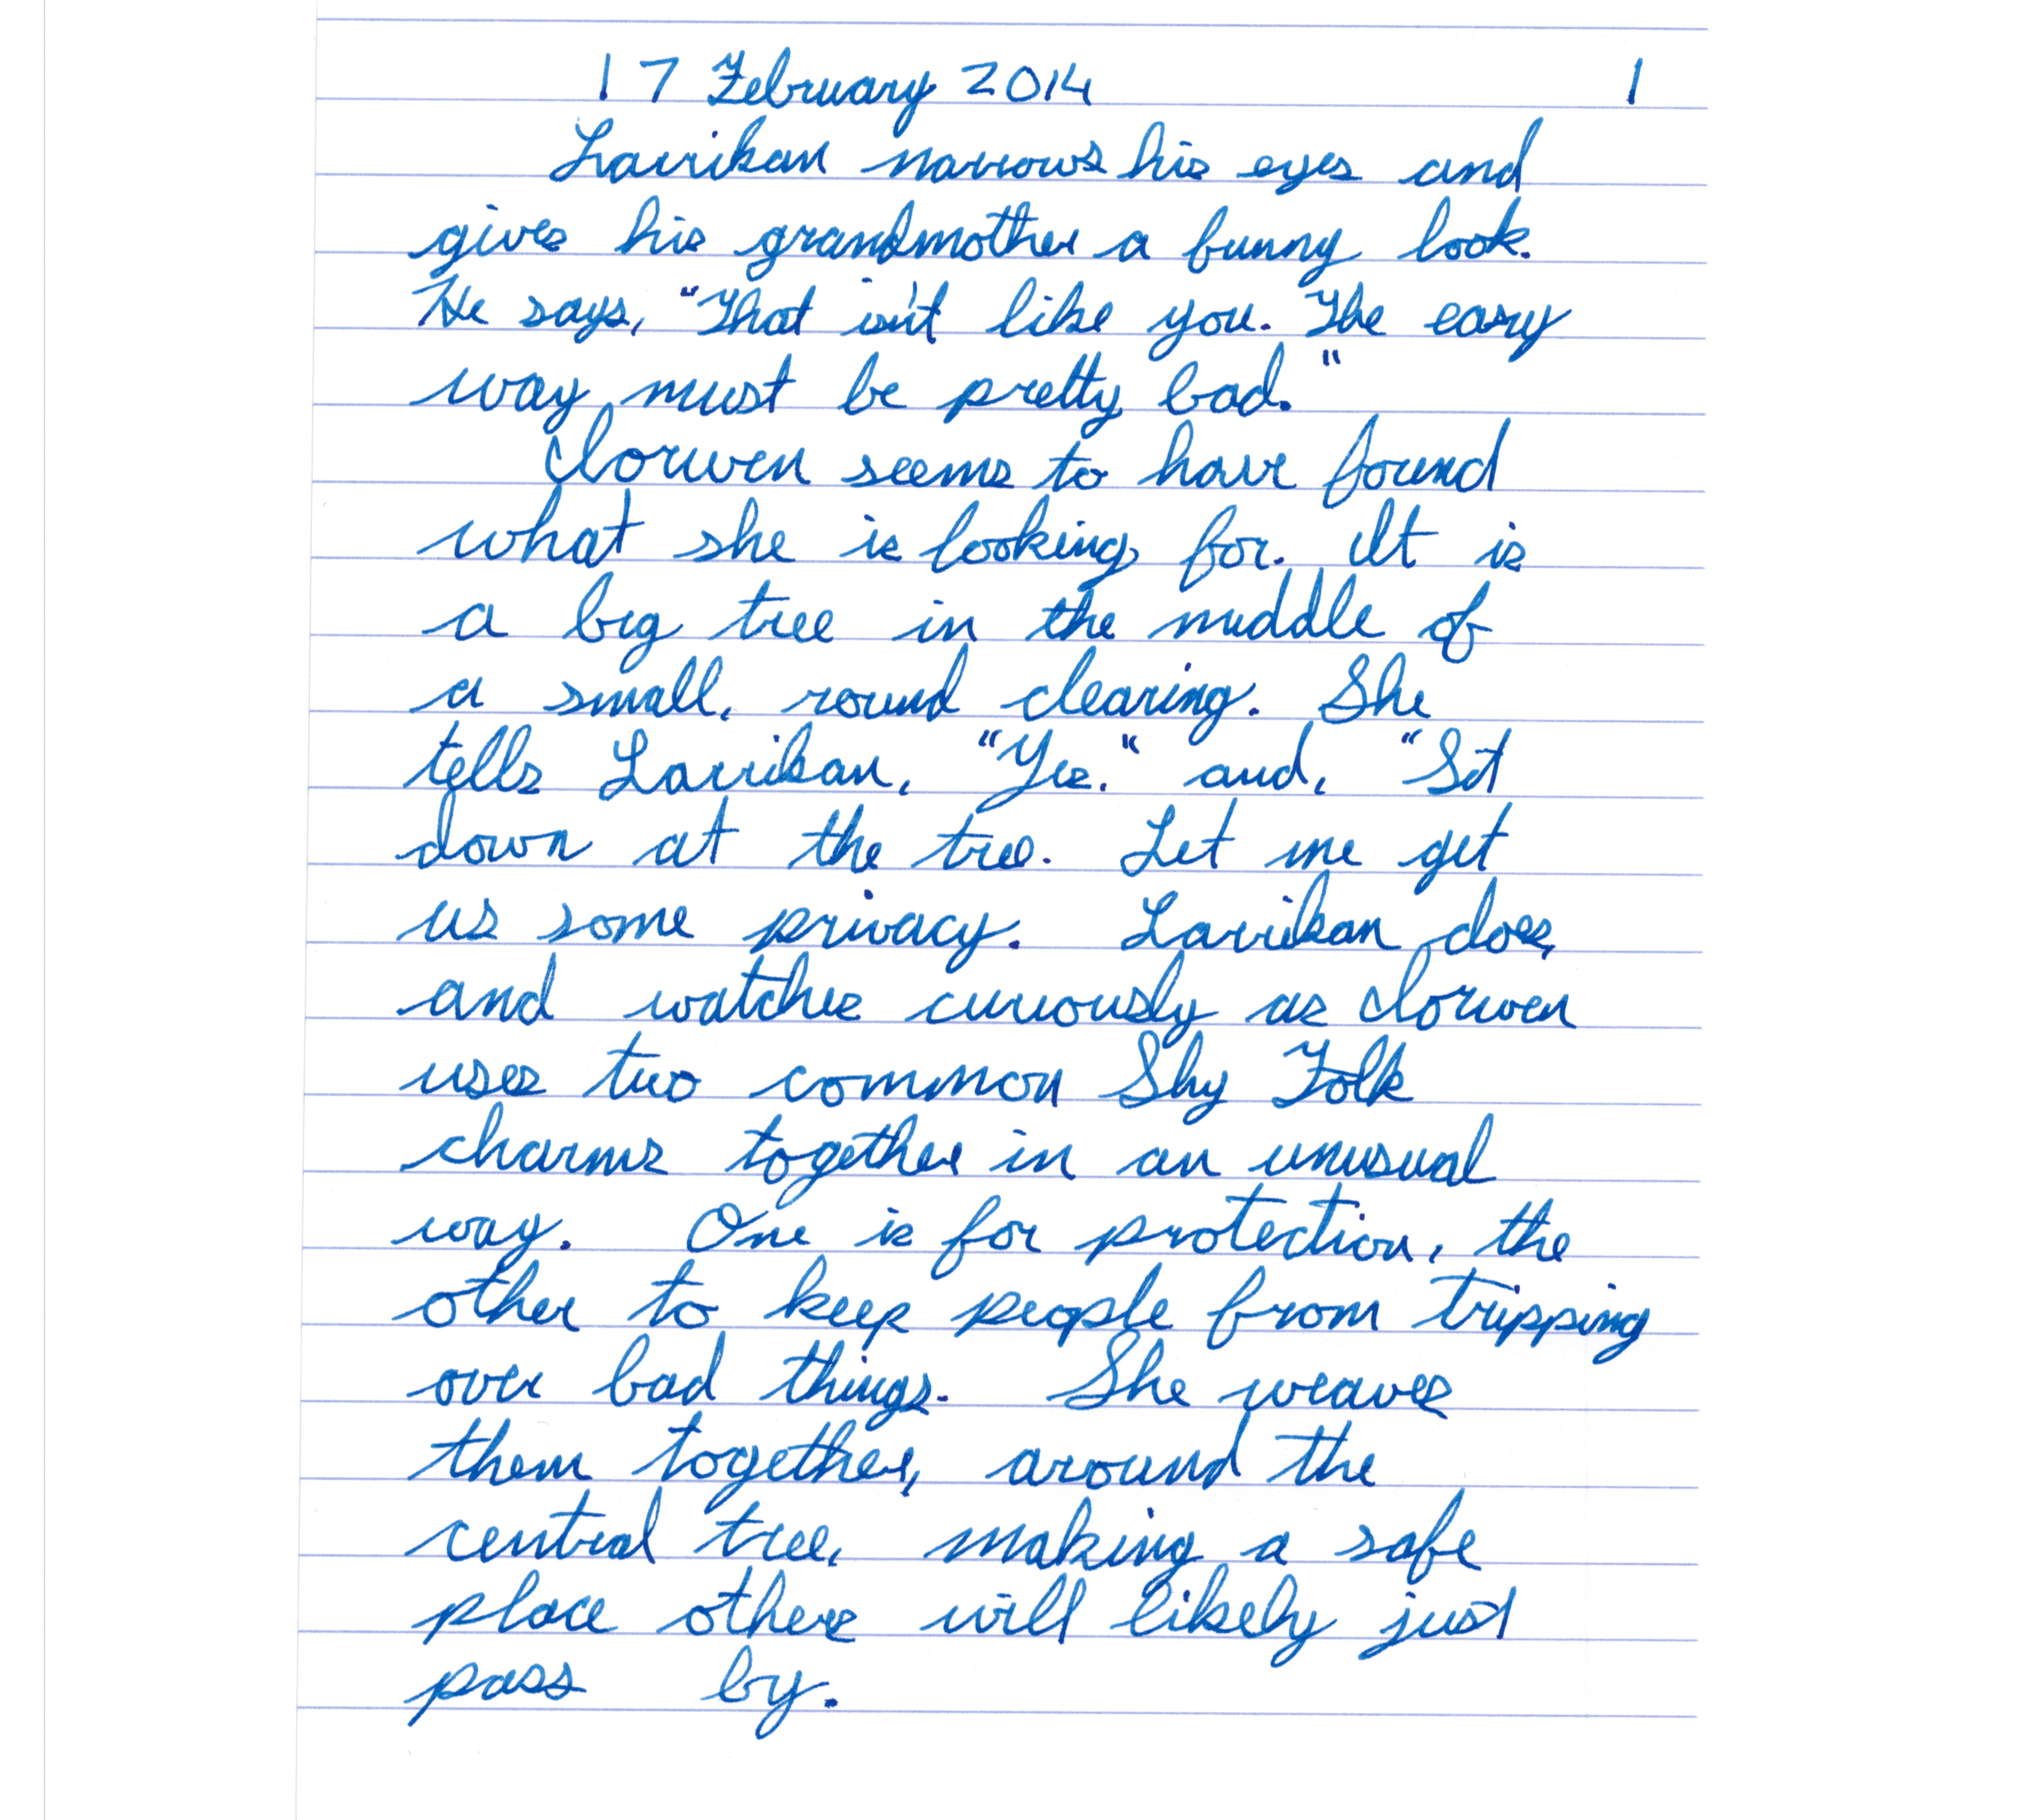 17 February 2014 1
Larrikan narrows his eyes and
gives his grandmother a funny look.
He says, "That isn't like you. The easy
way must be pretty bad."
Iorwen seems to have found
what she is looking for. It is
a big tree in the middle of
a small, round clearing. She
tells Larrikan, "Yes." and, "Sit
down at the tree. Let me get
us some privacy. Larrikan does,
and watches curiously as Iorwen
uses two common Shy Folk
charms together in an unusual
way. One is for protection, the
other to keep people from tripping
over bad things. She weaves
them together, around the
central tree, making a safe
place others will likely just
pass by.